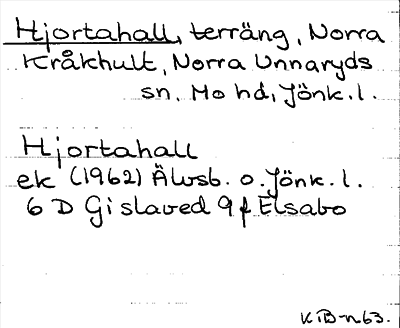 Hjortahall, terräng, Norra
Kråkhult, Norra Unnaryds
sn, Mo hd, Jönk. l.
Hjortahall
ek (1962) Älvsb. o. Jönk. l.
6 D Gislaved 9 f Elsabo
KB-n63.